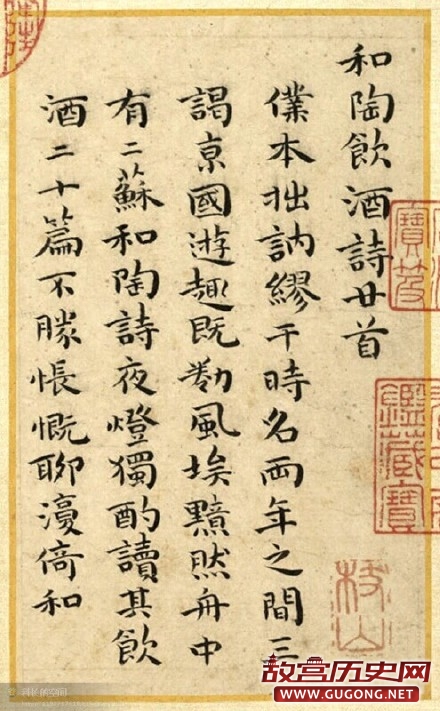 和陶飲酒詩廿首
僕本拙訥繆干時名兩年之間三
謁京國遊趣既勌風埃黯然舟中
有二蘇和陶詩夜燈獨酌讀其飲
酒二十篇不勝悵慨聊倚和
寶笈
鑑藏寶
枝山
故宫历史网
WWW.GUGONG.NET